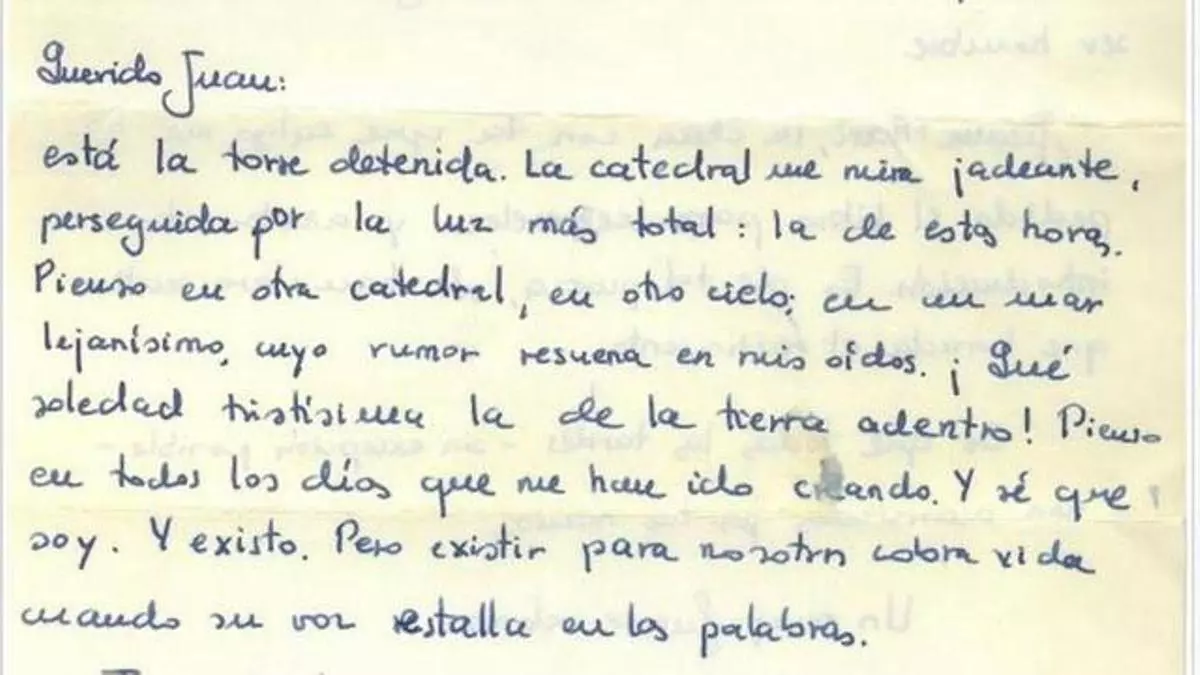 Querido Juan:
está la torre detenida. La catedral me mira jadeante,
perseguida por la luz más total: la de esta hora.
Pienso en otra catedral, en otro cielo; en un mar
lejanísimo, cuyo rumor resuena en mis oidos. ¡Qué
soledad tristísima la de la tierra adentro! Pienso
en todos los días que me han ido creando. Y sé que
soy. Y existo. Pero existir para nosotros cobra vida
cuando su voz restalla en las palabras.